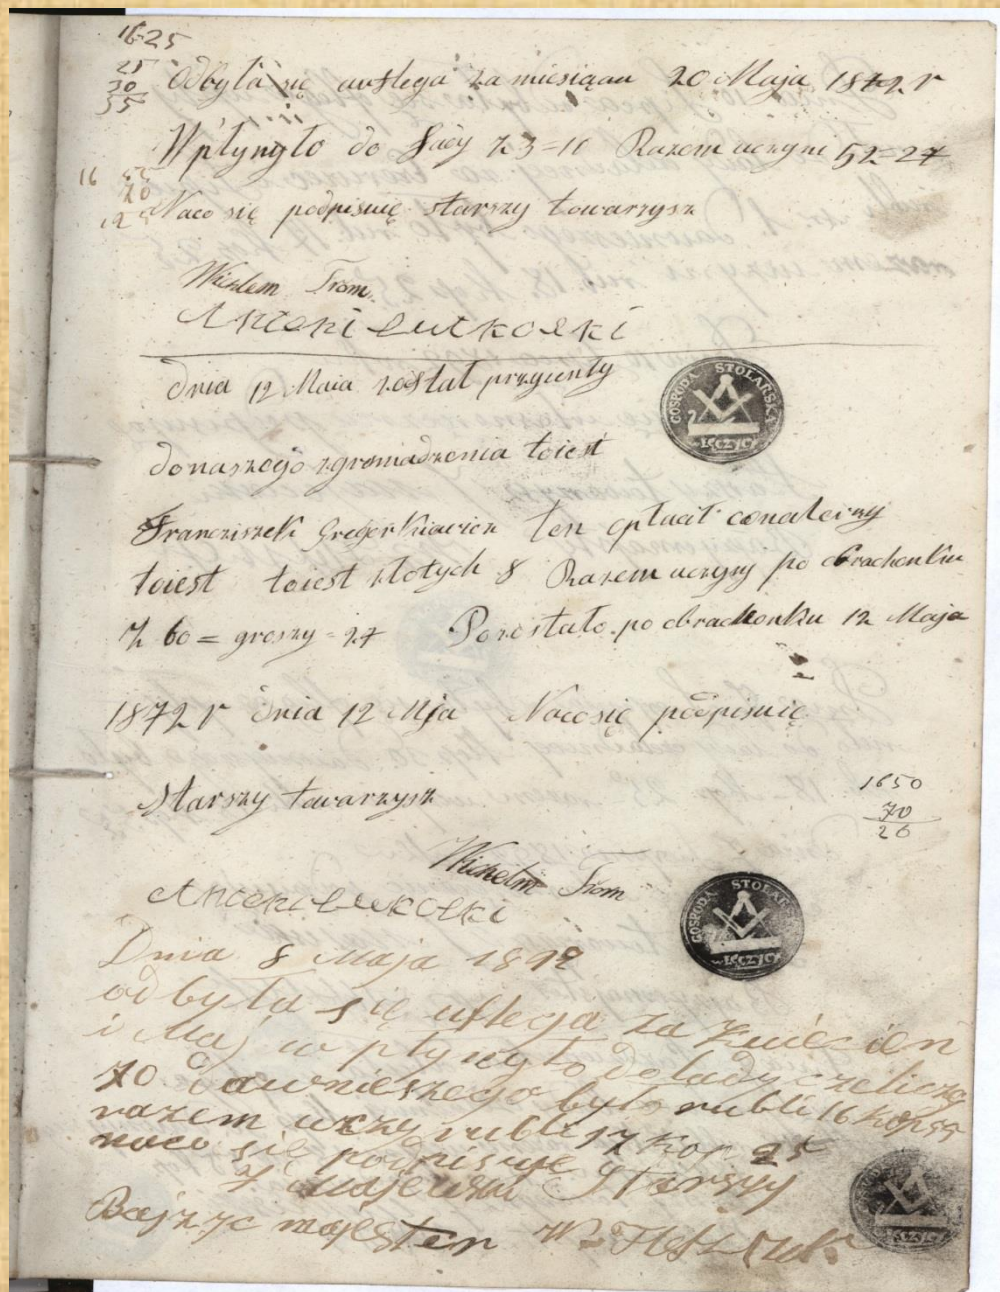 1625
25
30
55
Odbyła się auflega za miesiąau 20 Maja 1872 r
Wpłynyło do Łady z 3=11 Razem uczyni 52=27
16 55
70
125
Naco się podpisuię starszy towarzysz
Wichlem Trom.
Antoni Lutkoski
dnia 12 Maia został przyienty
GOSPODA STOLARSKA
w ŁĘCZYCY
donaszego zgromadzenia toiest
Franciszek Gregorkiewicz ten opłacił conależny
toiest toiest złotych 8 Razem uczyny po obrachonku
Z 60 = groszy = 27 Pozostało po obrachonku 12 Maja
1872 r dnia 12 Mja Nacosię podpisuię
starszy towarzysz
1650
70
20
Wichelm Trom
Antoni Lutkoski
GOSPODA STOLARSKA
w ŁĘCZYCY
Dnia 8 Maja 1892
odbyła się uflega za Kwiecien
i Maj w płynyło dolady czeliczy
70 dawnieszego było rubli 16 kop 55
razem uczy rubli 17 Kop 25
naco się podpisuje
Majewski Starszy
majester